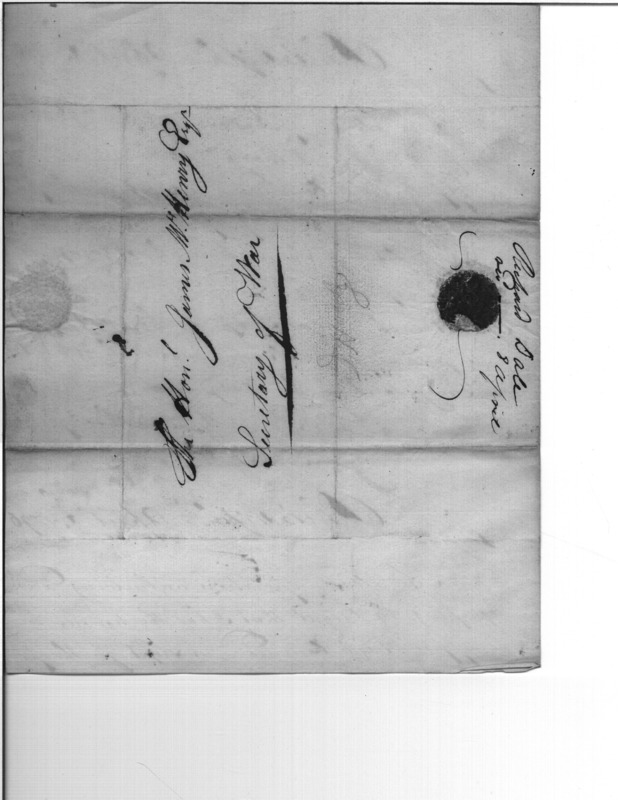 The Hon.l James McHenry Esqr
Secretary of War
Richard Dale
8 april